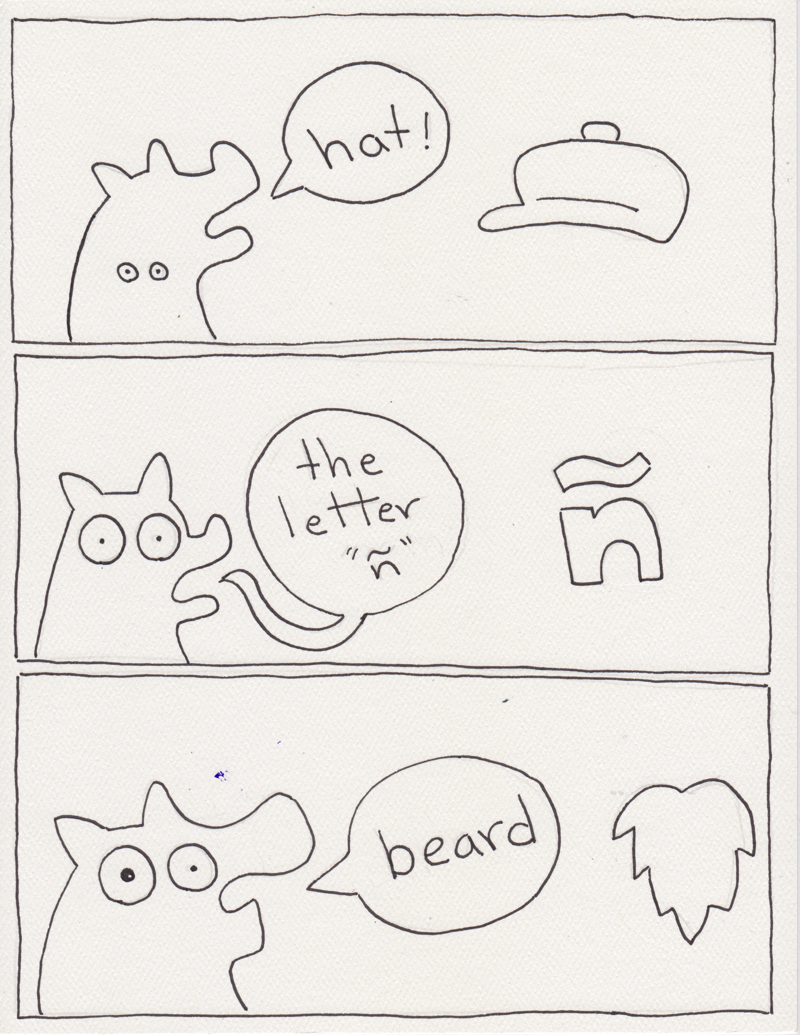 hat!
the
letter
"ñ"
ñ
beard